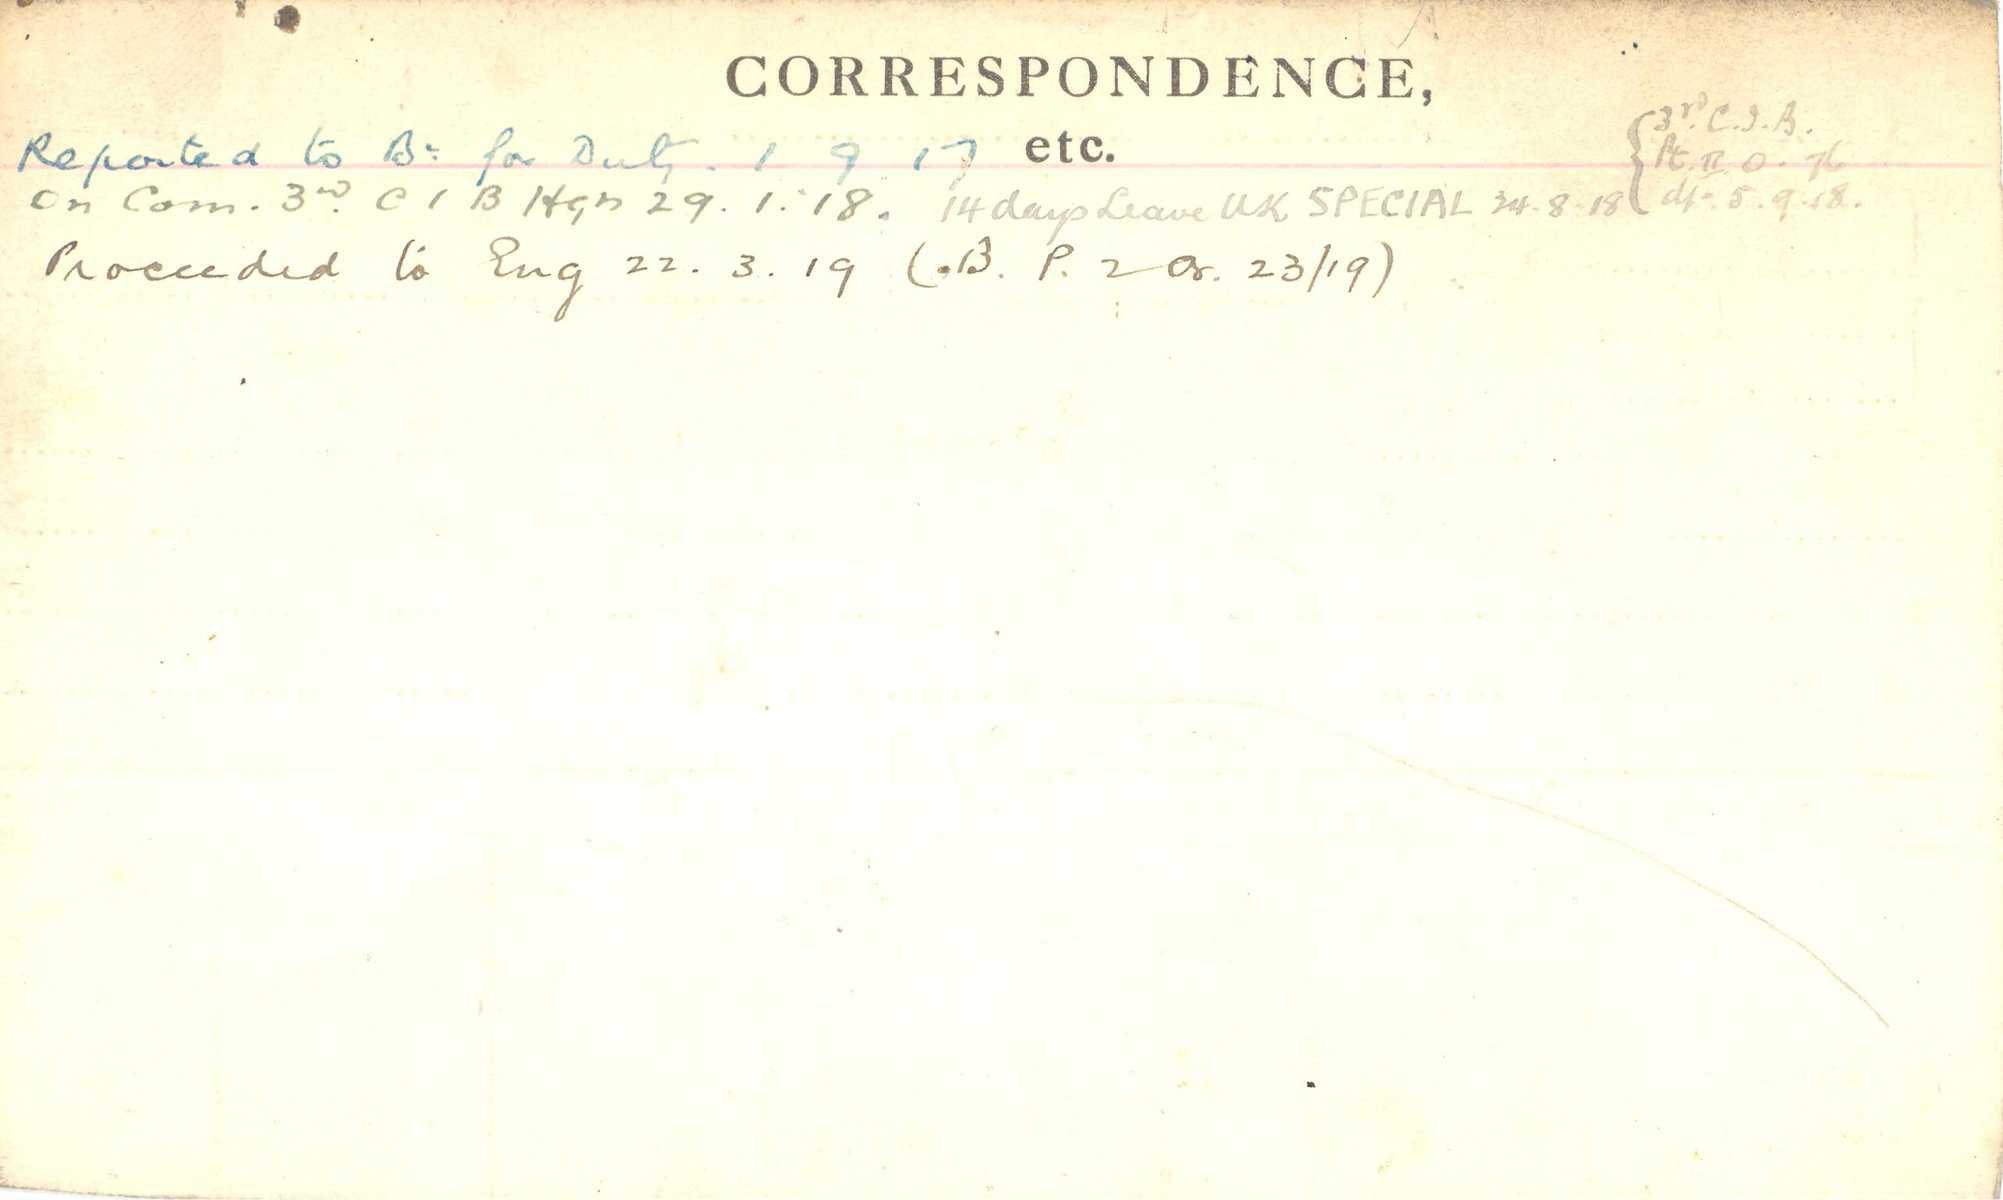 CORRESPONDENCE,
etc.
Reported to Bn for Duty. 1 9 17
On Com. 3rd C I B Hqrs 29. 1. 18. 14 days Leave UK SPECIAL 24.8.18
{3rd. C.I.B.
Pt. II O. 76
dt. 5.9.18.
Proceeded to Eng 22. 3. 19 (.B. P. 2 Or. 23/19)